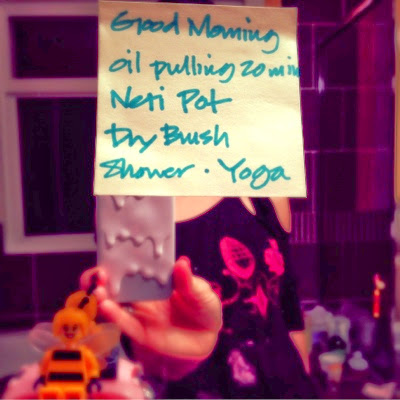 Good Morning
oil pulling 20 min
Neti Pot
Dry Brush
Shower · Yoga